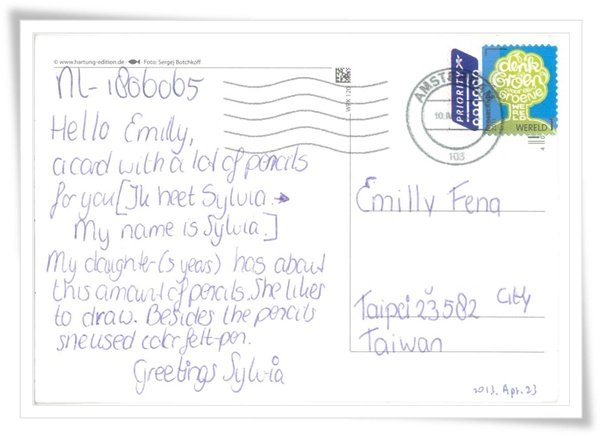 © www.hartung-edition.de Foto: Sergej Botchkoff
NL-1806065
Hello Emilly,
a card with a lot of pencils
for you [Ik heet Sylvia. →
My name is Sylvia.]
My daughter (5 years) has about
this amount of pencils. She likes
to draw. Besides the pencils
sne used color felt-pen.
Greetings Sylvia
PRIORITY
AMSTERDAM
103
denk
Groen
Groene
WE
RE
LD
WERELD
Emilly Feng
Taipei 23582 City
Taiwan
2013. Apr. 23